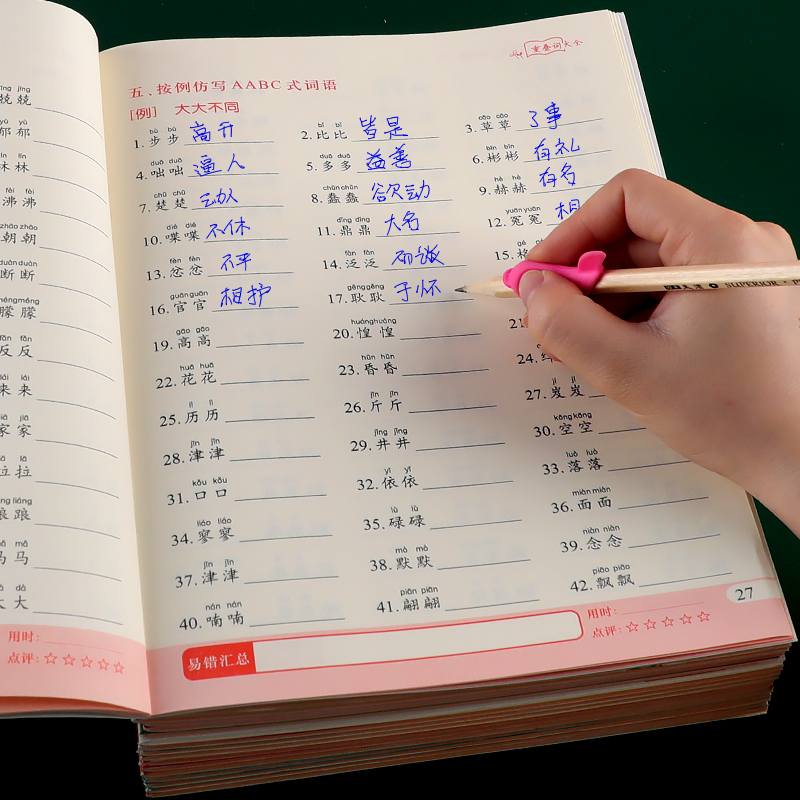 jīng jīng
兢兢
yù yù
郁郁
lín lín
林林
fèi fèi
沸沸
zhāo zhāo
朝朝
duàn duàn
断断
méng méng
朦朦
fǎn fǎn
反反
lái lái
来来
jiā jiā
家家
lā lā
拉拉
liàng
踉踉
mǎ mǎ
马马
dà dà
大大
用时:
点评: ☆☆☆☆☆
重叠词大全
五、按例仿写AABC式词语
[例] 大大不同
bù bù bǐ bǐ cǎo cǎo
1. 步步 高升 2. 比比 皆是 3. 草草 了事
duō duō duō duō bīn bīn
4. 咄咄 逼人 5. 多多 益善 6. 彬彬 有礼
chǔ chǔ chǔn chǔn hè hè
7. 楚楚 动人 8. 蠢蠢 欲动 9. 赫赫 有名
dié dié dǐng dǐng yuān yuān
10. 喋喋 不休 11. 鼎鼎 大名 12. 冤冤 相
fèn fèn fàn fàn gé
13. 忿忿 不平 14. 泛泛 而谈 15. 格
guān guān gěng gěng
16. 官官 相护 17. 耿耿 于怀
gāo gāo huáng huáng
19. 高高 20. 惶惶 21
huā huā hūn hūn
22. 花花 23. 昏昏 24.
lì lì jīn jīn jí jí
25. 历历 26. 斤斤 27. 岌岌
jīn jīn jǐng jǐng kōng kōng
28. 津津 29. 井井 30. 空空
kǒu kǒu yī yī luò luò
31. 口口 32. 依依 33. 落落
liáo liáo lù lù miàn miàn
34. 寥寥 35. 碌碌 36. 面面
jīn jīn mò mò niàn niàn
37. 津津 38. 默默 39. 念念
nán nán piān piān piāo piāo
40. 喃喃 41. 翩翩 42. 飘飘
27
易错汇总
用时:
点评: ☆☆☆☆☆
SUPERIOR